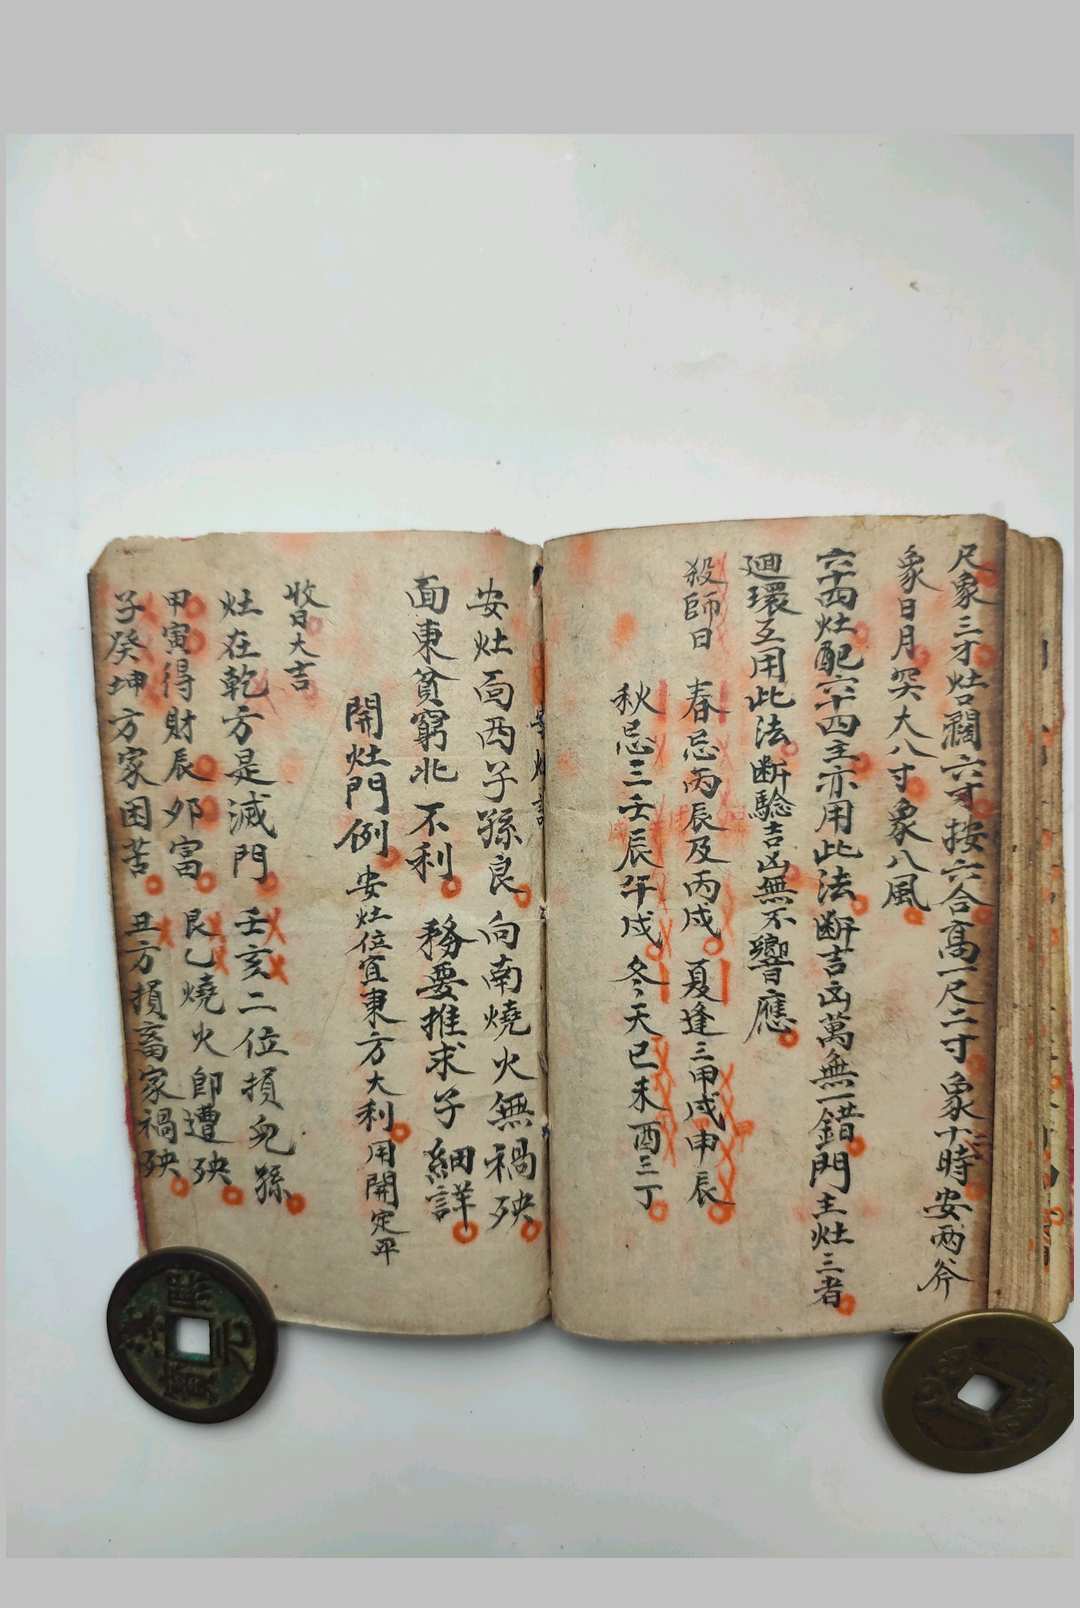 尺象三才灶濶六寸按六合高一尺二寸象十二時安兩斧
象日月突大八寸象八風
六十四灶配六十四主亦用此法断吉凶萬無一錯門主灶三者
迴環互用此法断驗吉凶無不響應
殺師日 春忌丙辰及丙戌 夏逢三甲戌申辰
秋忌三壬辰午戌 冬天巳未酉三丁
安灶面西子孫良 向南燒火無禍殃
面東貧窮北不利 務要推求子細詳
開灶門例 安灶位宜東方大利用開定平
收日大吉
灶在乾方是滅門 壬亥二位損兒孫
甲寅得財辰夘富 艮乙燒火即遭殃
子癸坤方家困苦 丑方損畜家禍殃